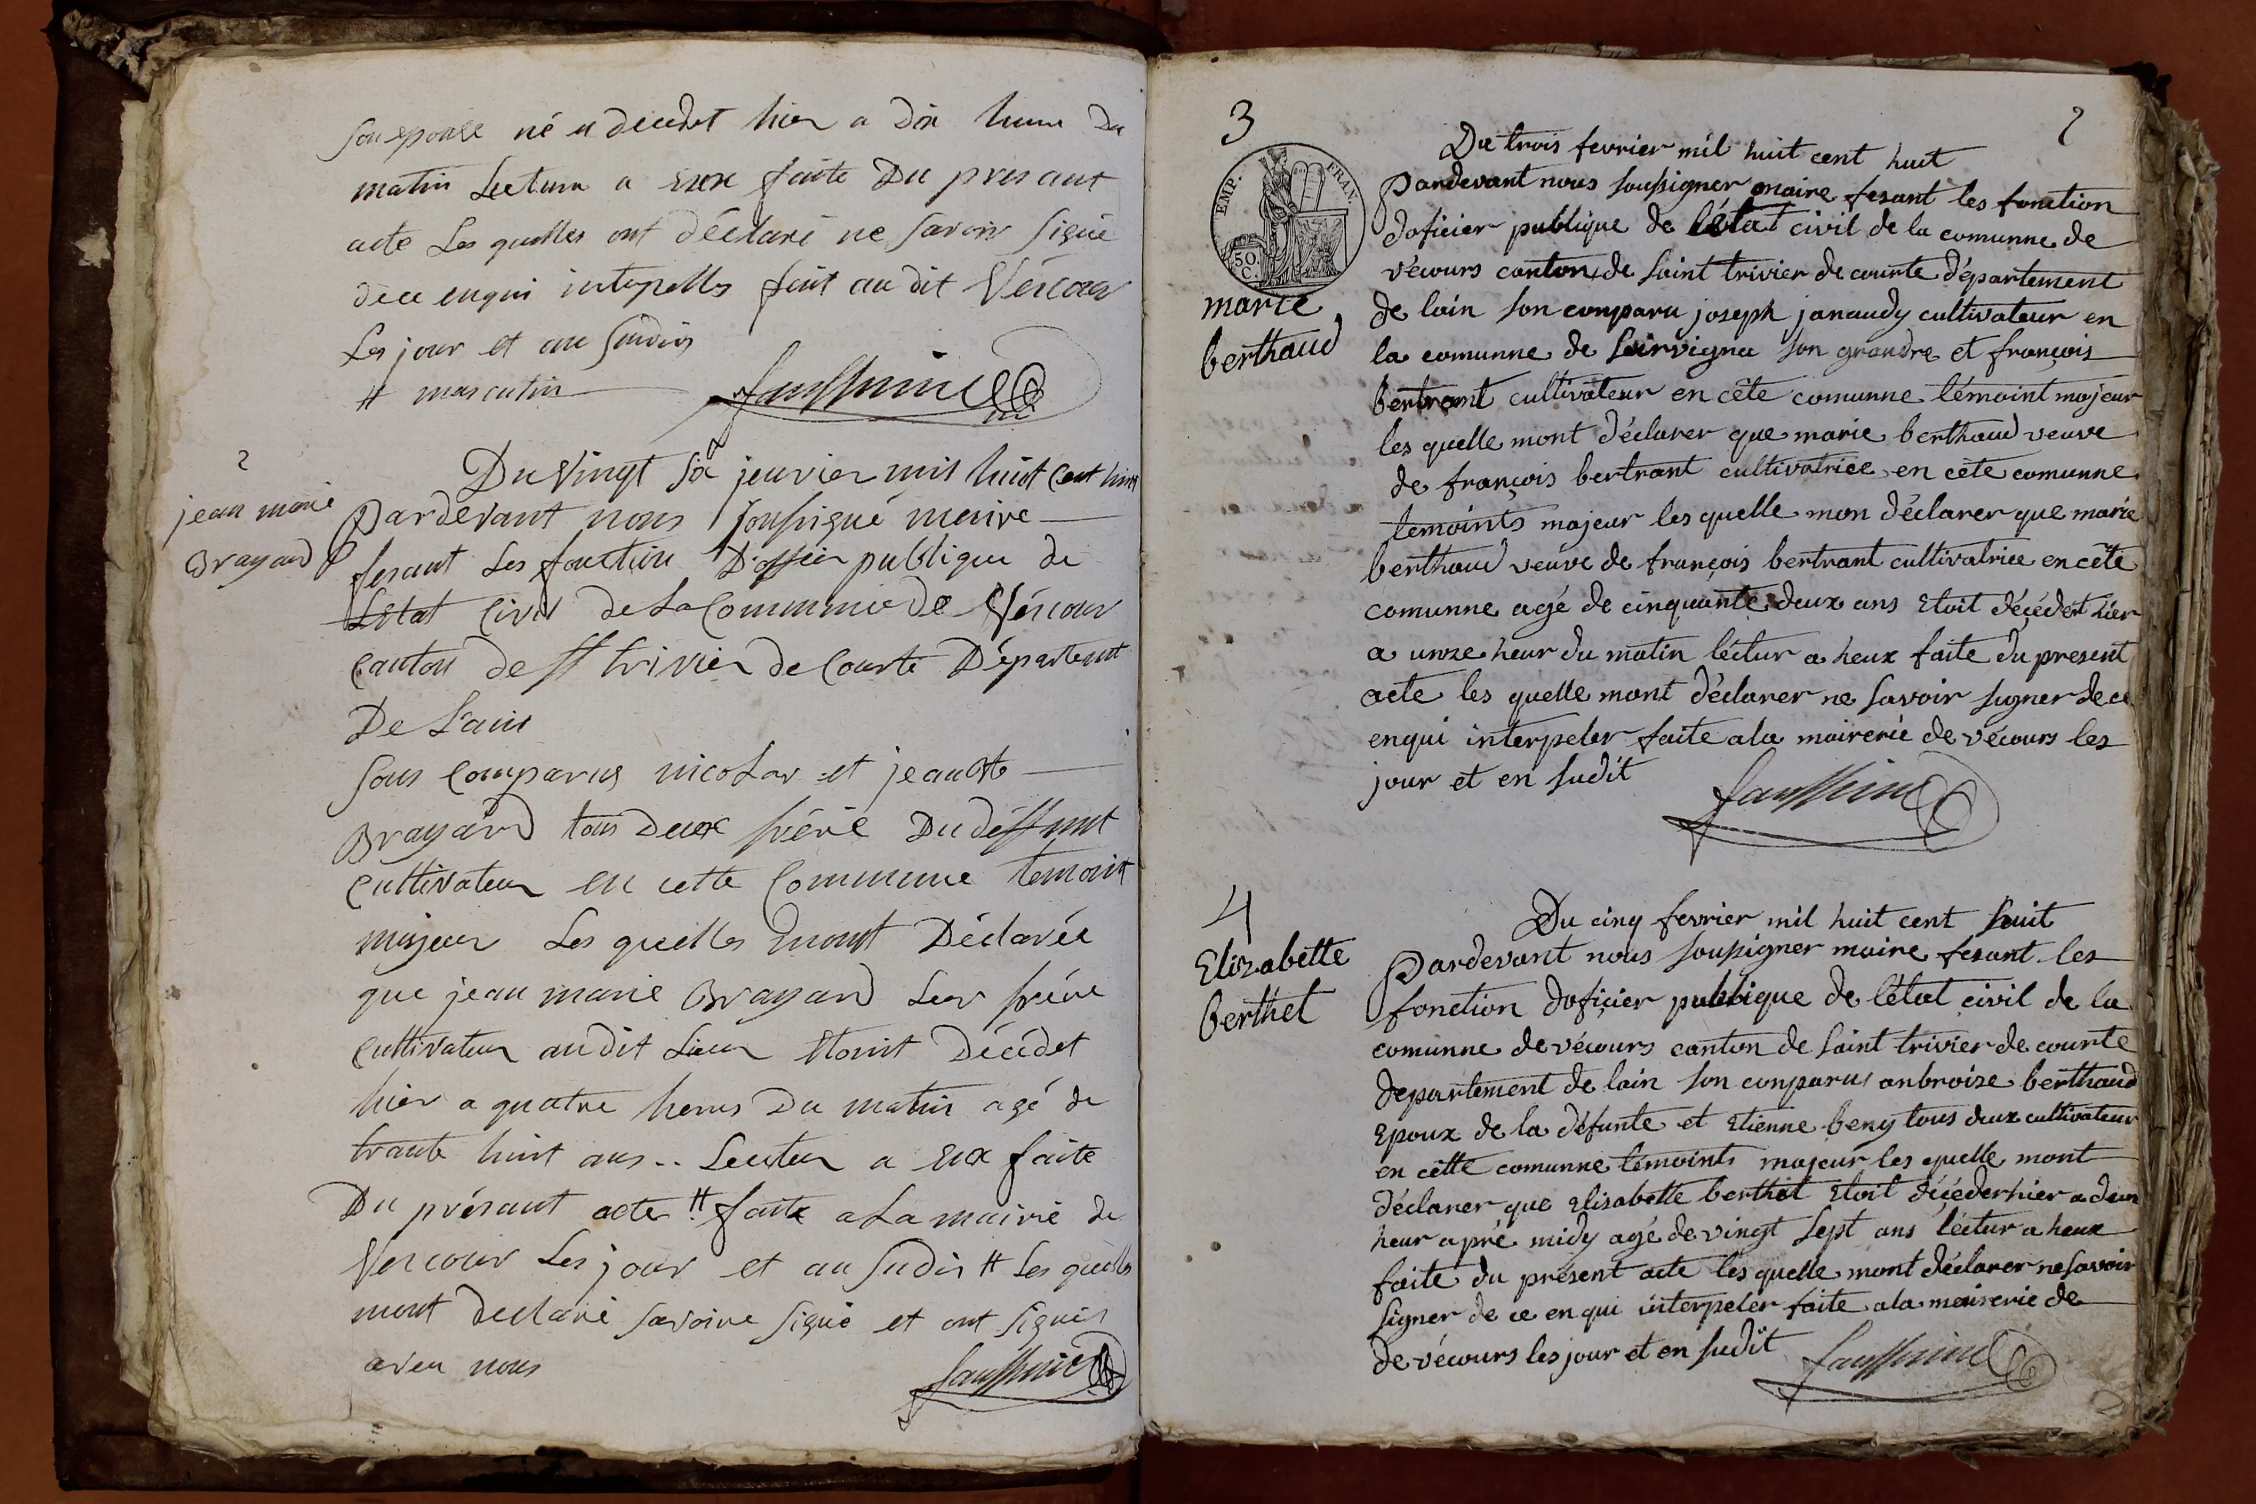 son epouse né et decedet hier a dix heur du
matin Lectura a Eux faite Du presant
acte Les quelles ont déclaré ne savoir signé
dece enqui interpelles fait au dit Vécour
Les jour et an Sudis
# masculin
faussurier
2
jean marie
Brayard
Du vingt six jenvier mil huit Cent huit
Pardevant nous soussigné maire
fesant Les fonction D'officier publique de
Létat Civil de La Commune De Vécour
Canton de St trivier de Courte Département
De L'ain
Sous Comparus nicolas et jean Bte
Brayard tous Deux frére Du déffunt
Cultivateur en cette Commune temoint
majeur Les quelles mont Déclarée
que jean marie Brayard Leur frére
Cultivateur au dit Lieu Etoint Décédet
hier a quatre heures Du matin agé de
trante huit ans .. Lecteur a Eux faite
Du présant acte # faite a La mairie de
Vécour Les jour et an Sudis # Les quelles
mont declaré savoire signé et ont signés
avec nous
3
2
EMP. FRAN.
50. C.
marie
berthaud
Du trois fevrier mil huit cent huit
Pardevant nous soussigner maire fesant les fonction
doficier publique de létat civil de la comunne de
vécours canton de saint trivier de courte département
de lain son comparu joseph janaudy cultivateur en
la comunne de Servigna son grandre et françois
bertrant cultivateur en cète comunne témoint majeur
les quelle mont déclarer que marie berthaud veuve
de françois bertrant cultivatrice en cète comunne
temoints majeur les quelle mon déclarer que marie
berthaud veuve de françois bertrant cultivatrice en cète
comunne agé de cinquante deux ans Etoit décédert hier
a unze heur du matin léctur a heux faite du present
acte les quelle mont déclarer ne savoir signer de ce
enqui interpeler faite ala mairerie de vécours les
jour et en sudit
4
Elizabette
berthet
Du cinq fevrier mil huit cent huit
Pardevant nous soussigner maire fesant les
fonction doficier publique de létat civil de la
comunne de vécours canton de saint trivier de courte
departement de lain son conparus anbroize berthaud
Epoux de la défunte et Etienne beny tous deux cultivateur
en cètte comunne témoints majeur les quelle mont
déclarer que Elisabette berthet Etoit décéder hier a deux
heur apré midy agé de vingt sept ans léctur a heux
faite du présent acte les quelle mont déclarer ne savoir
signer de ce en qui interpeler faite ala mairerie de
de vécours les jour et en sudit